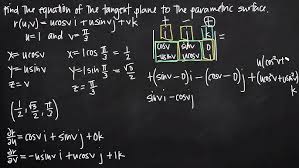 Find the equation of the tangent plane to the parametric surface.
r(u,v) = ucosv i + usinv j + vk
u=1 and v=π/3
x=ucosv
y=usinv
z=v
x=1cos π/3 = 1/2
y=1sin π/3 = √3/2
z= π/3
(1/2, √3/2, π/3)
∂r/∂u = cosv i + sinv j + 0k
∂r/∂v = -usinv i + ucosv j + 1k
i j k
cosv sinv 0
-usinv ucosv 1
+(sinv-0)i - (cosv-0)j + (ucos²v+usin²v)k
sinv i - cosv j